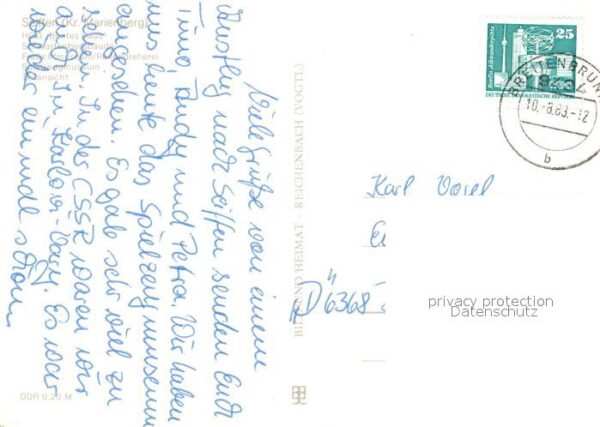 Viele Grüße von einem
Ausflug nach Seiffen senden Euch
Timo, Andy und Petra. Wir haben
uns heute das Spielzeugmuseum
angesehen. Es gab sehr viel zu
sehen. In der CSSR waren wir
auch. In Karlovi-Vary. Es war
wieder einmal schön.
Seiffen (Kr. Marienberg)
DDR 0,20 M
BILD UND HEIMAT · REICHENBACH (VOGTL)
25
Berlin, Alexanderplatz
DEUTSCHE DEMOKRATISCHE REPUBLIK
BREITENBRUNN
10.-8.83.-12
b
Karl
D 6368
privacy protection
Datenschutz